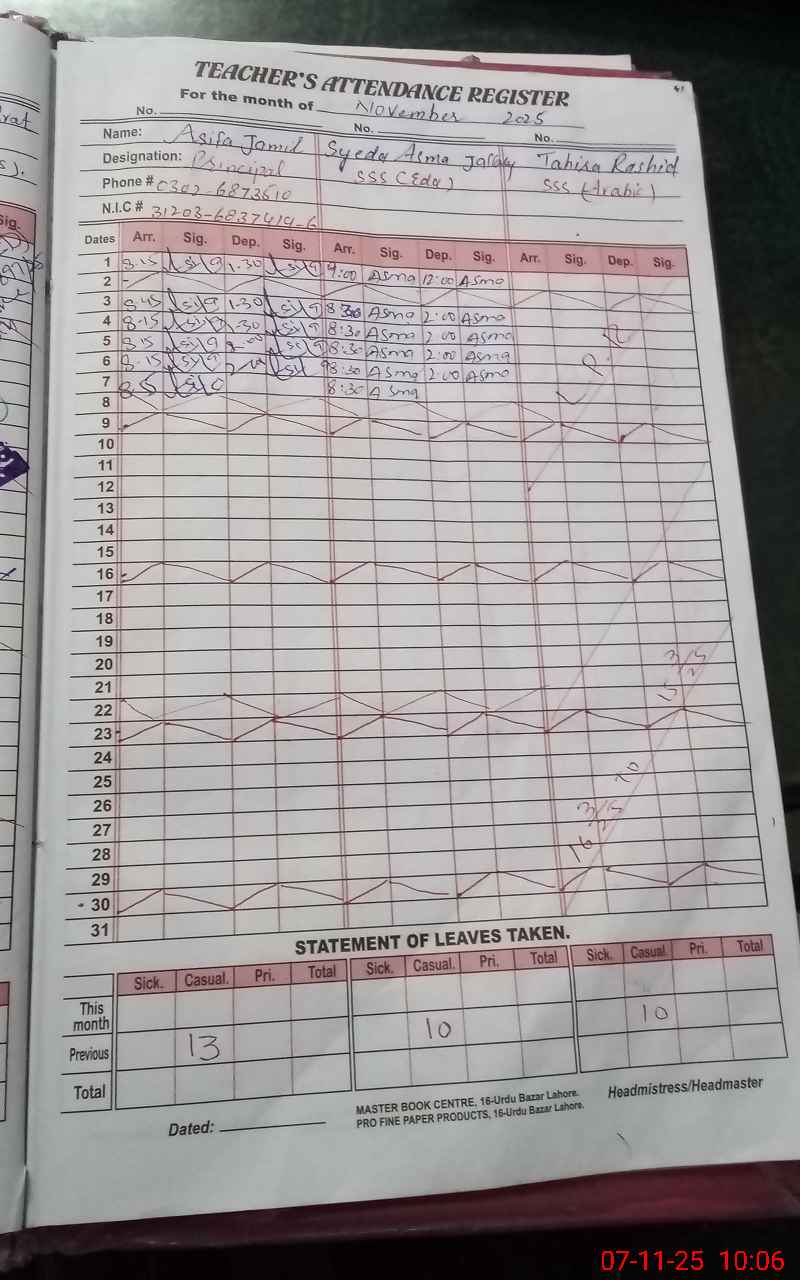 TEACHER'S ATTENDANCE REGISTER
For the month of November 2025
No. No. No.
Name: Asifa Jamil Syeda Asma Tahira Rashid
Designation: Principal SSS SSS (Arabic)
Phone # 0302-6873510
N.I.C # 31203-6837414-6
Dates Arr. Sig. Dep. Sig. Arr. Sig. Dep. Sig. Arr. Sig. Dep. Sig.
1 8.15 1.30 9:00 Asma 12:00 Asma
2
3 8.45 1.30 8:30 Asma 2:00 Asma
4 8.15 1.30 8:30 Asma 2:00 Asma
5 8.15 2.00 8:30 Asma 2:00 Asma
6 8.15 2.00 8:30 Asma 2:00 Asma
7 8:30 Asma
8
9
10
11
12
13
14
15
16
17
18
19
20
21
22
23
24
25
26
27
28
29
30
31
STATEMENT OF LEAVES TAKEN.
Sick. Casual. Pri. Total Sick. Casual. Pri. Total Sick. Casual. Pri. Total
This month
Previous 13 10 10
Total
Dated:
MASTER BOOK CENTRE, 16-Urdu Bazar Lahore.
PRO FINE PAPER PRODUCTS, 16-Urdu Bazar Lahore.
Headmistress/Headmaster
07-11-25 10:06